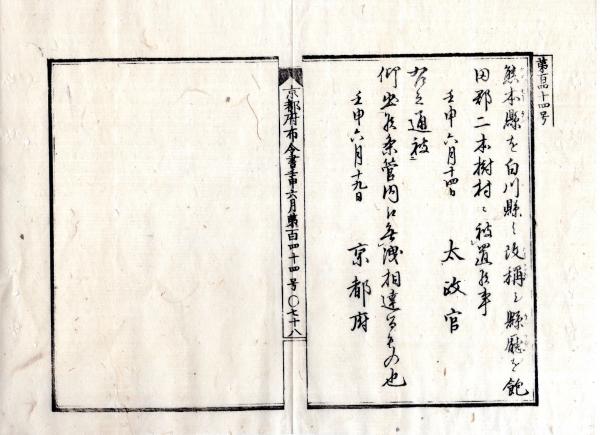 第百四十四号
熊本縣を白川縣と改稱之縣廳を飽
田郡二本樹村ニ被置候事
壬申六月十四日 太政官
右之通被
仰出候条管内江無洩相達るもの也
壬申六月十九日 京都府
京都府布令書壬申六月第百四十四号〇七十八